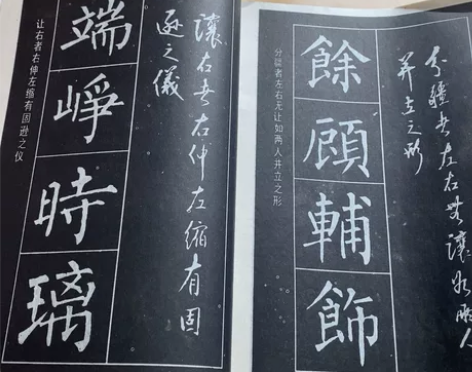 分疆者左右無讓如兩人
并立之形
餘
顧
輔
飾
分疆者左右无让如两人并立之形
讓右者右伸左縮有固
遜之儀
端
崢
時
璃
让右者右伸左缩有固逊之仪